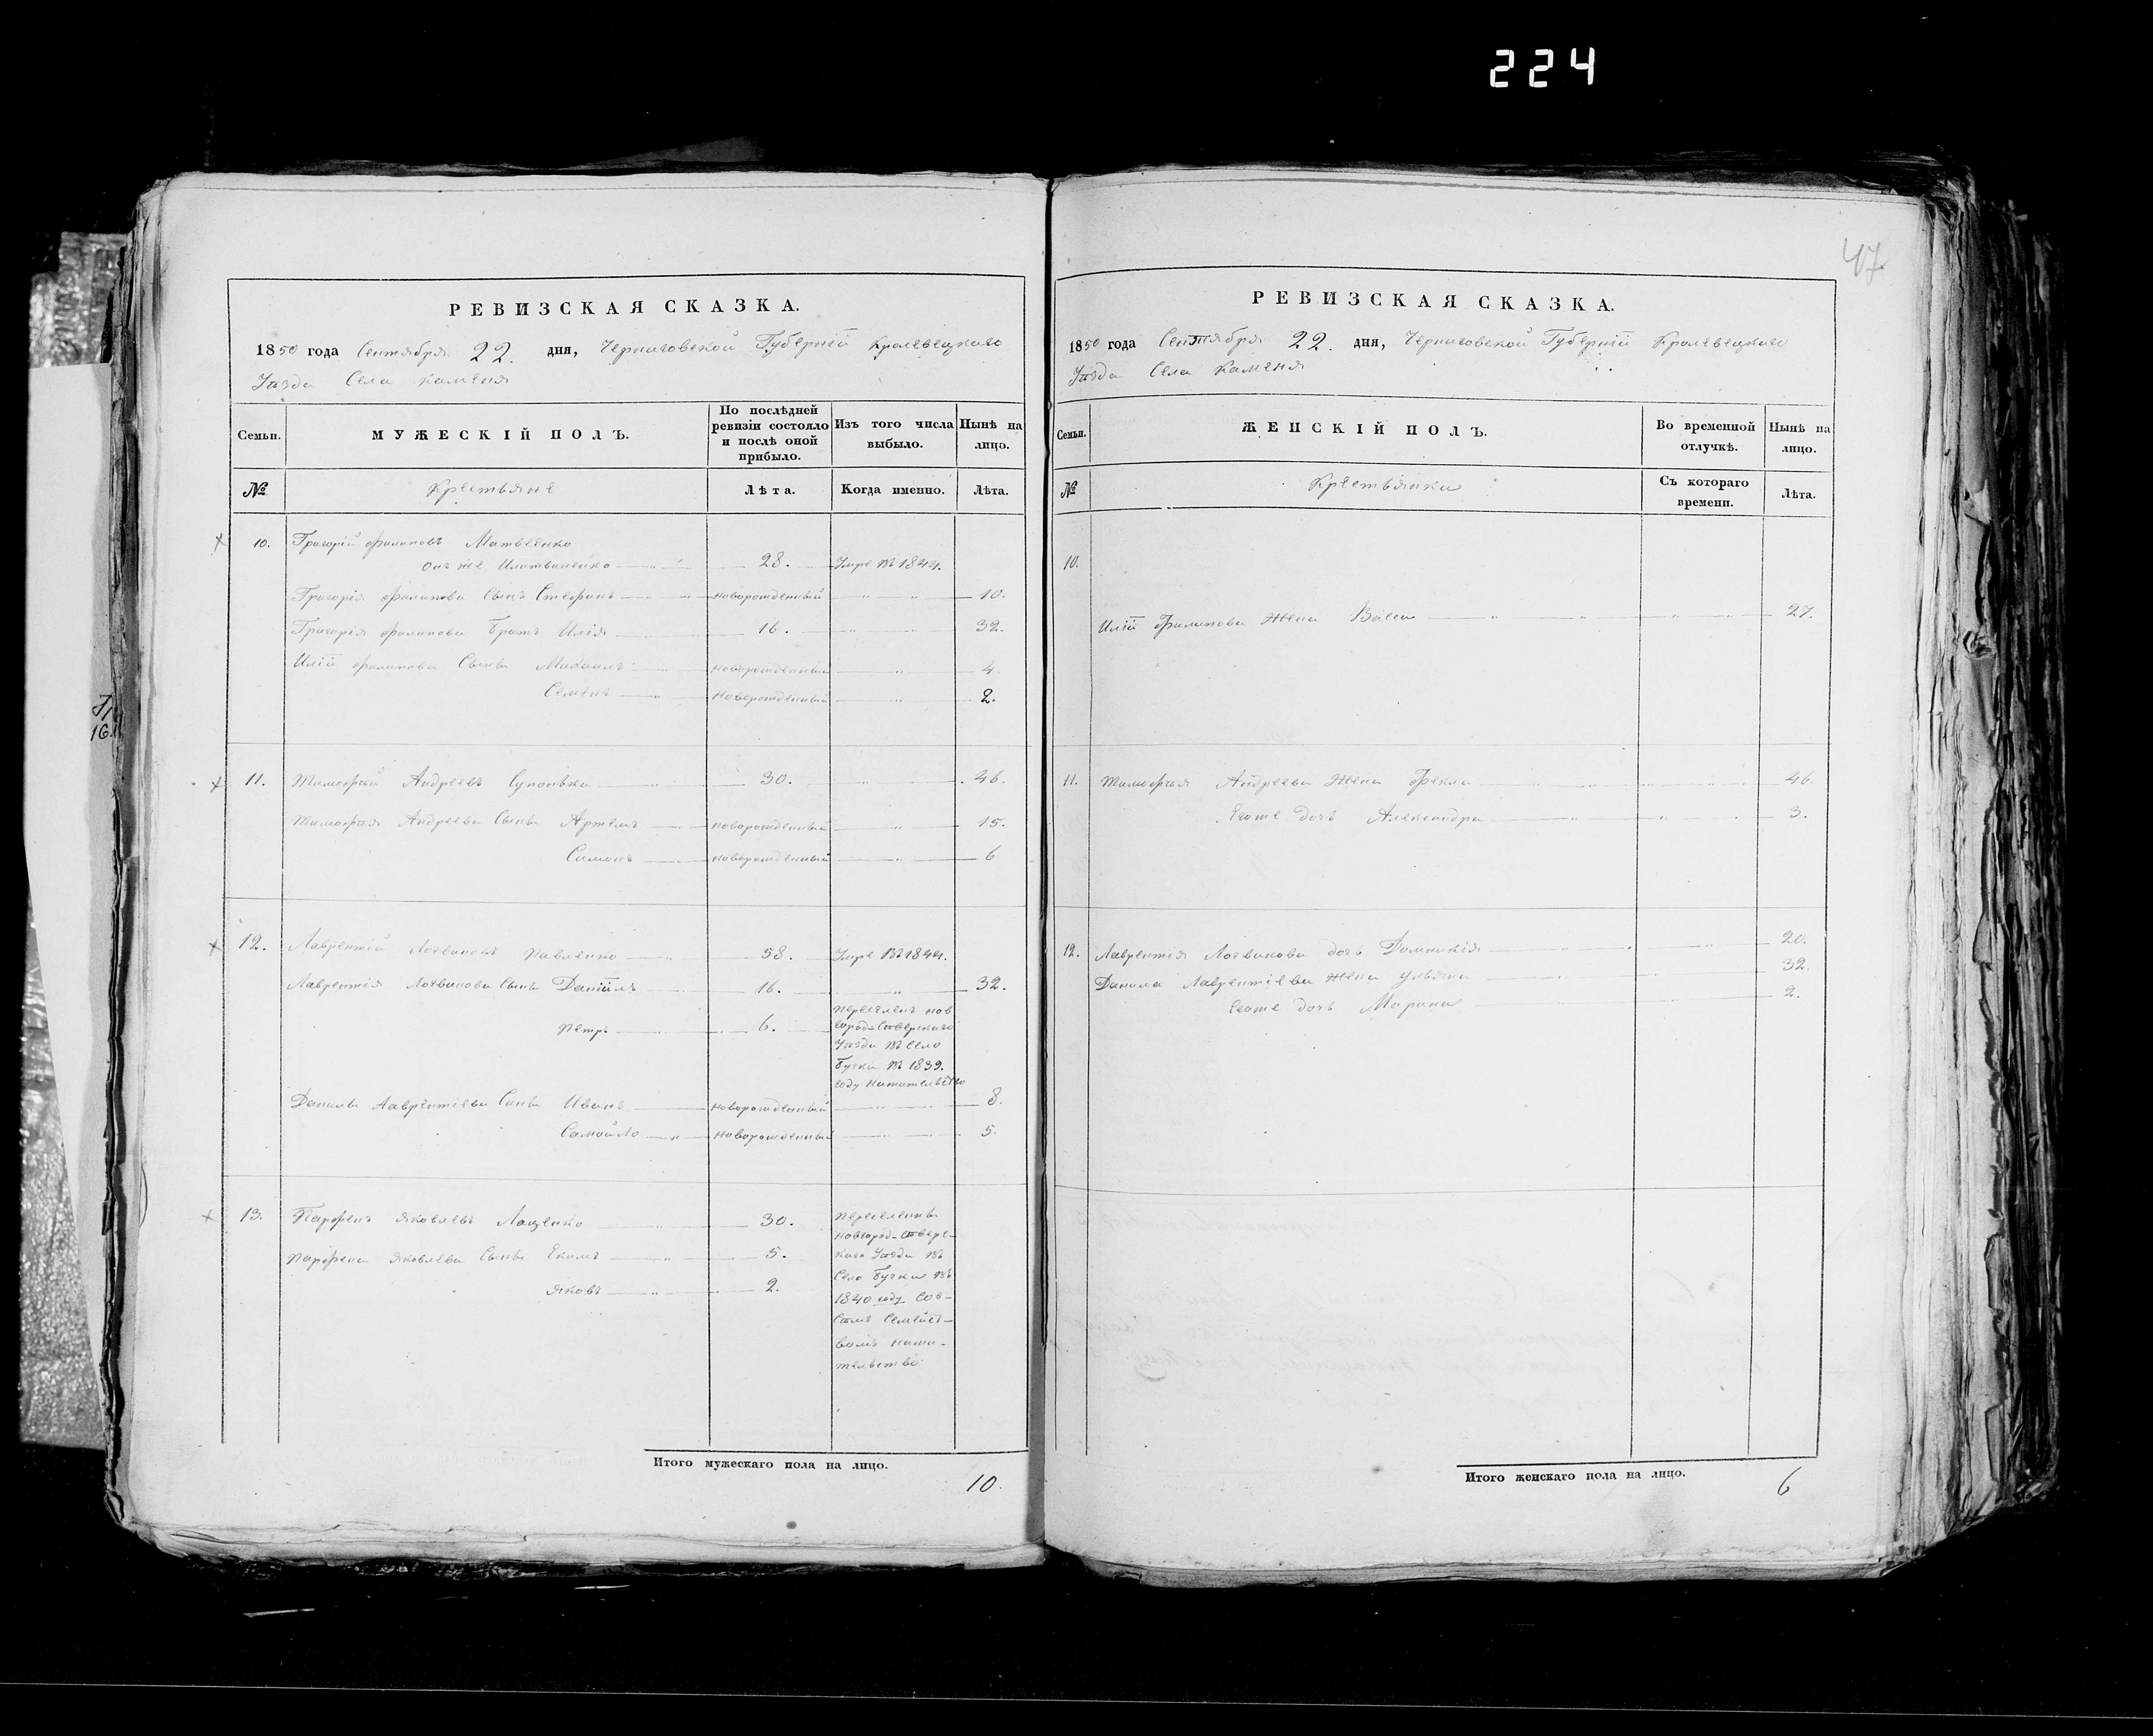 224
47
РЕВИЗСКАЯ СКАЗКА.
1850 года Сентября 22. дня, Черниговской Губернiи Кролевецкаго
Уѣзда Села Каменя
Семьи.
МУЖЕСКІЙ ПОЛЪ.
По послѣдней ревизіи состояло и послѣ оной прибыло.
Изъ того числа выбыло.
Нынѣ на лицо.
№
Крестьяне
Лѣта.
Когда именно.
Лѣта.
10. Григорій Филиповъ Матвѣенко
онъ же 28. Умре въ 1844.
Григорія Филипова Сынъ Стефанъ новорожденный 10.
Григорія Филипова братъ Илія 16. 32.
Иліи Филипова Сынъ Михаилъ новорожденный 4
Семенъ новорожденный 2.
11. Тимофѣй Андреевъ Супонька 30. 46.
Тимофѣя Андреева Сынъ Артемъ новорожденный 15.
Симонъ новорожденный 6
12. Лаврентій Логвиновъ Павленко 58. Умре въ 1844.
Лаврентія Логвинова Сынъ Даніилъ 16. 32.
Петръ 6. Переселенъ Нов
городъ Сѣверскаго
Уѣзда въ Село
Бучки въ 1839.
году нажительство
Данила Лаврентіева Сынъ Иванъ новорожденный 8.
Самойло новорожденный 5.
13. Парфенъ Яковлевъ Лащенко 30.
Парфена Яковлева Сынъ Екимъ 5.
Яковъ 2.
Переселенъ
Новгород-Сѣверс-
каго Уѣзда въ
Село Бучки въ
1840 году Сов-
Семейст-
вомъ нажи-
тельство
Итого мужескаго пола на лицо.
10.
РЕВИЗСКАЯ СКАЗКА.
1850 года Сентября 22. дня, Черниговской Губернiи Кролевецкаго
Уѣзда Села Каменя
Семьи.
ЖЕНСКІЙ ПОЛЪ.
Во временной отлучкѣ.
Нынѣ на лицо.
№
Крестьянки
Съ котораго времени.
Лѣта.
10.
Иліи Филипова жена Васса 27.
11. Тимофѣя Андреева жена Фекла 46.
Егоже дочь Александра 3.
12. Лаврентія Логвинова дочь Домникія 20.
Данила Лаврентіева жена Ульяна 32.
Егоже дочь Марина 2.
Итого женскаго пола на лицо.
6